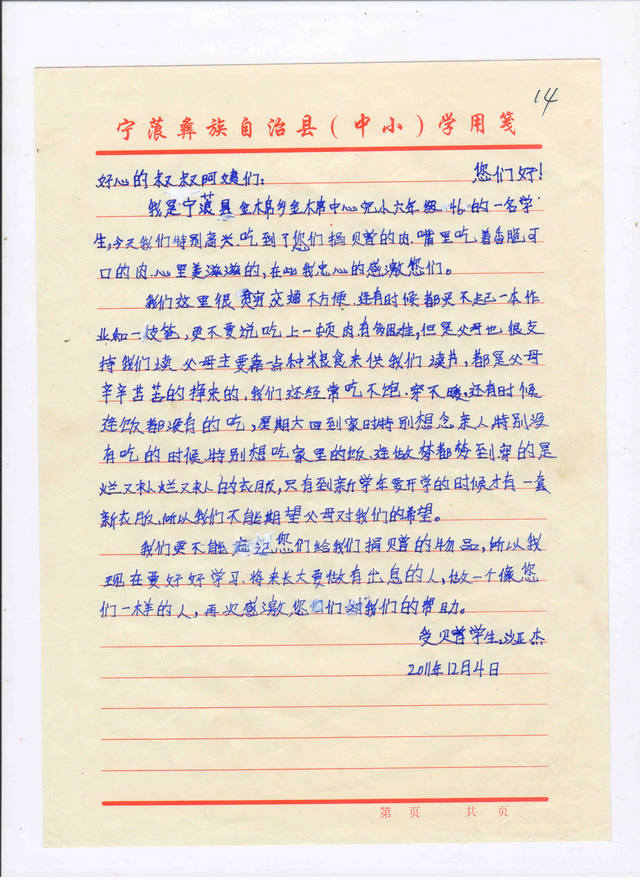 14
宁蒗彝族自治县(中小)学用笺
好心的叔叔阿姨们: 您们好!
我是宁蒗县金木席乡金木席中心完小六年级46的一名学
生,今天我们特别高兴.吃到了您们捐贝曾的肉.嘴里吃着香脆可
口的肉.心里美滋滋的,在此我忠心的感激您们。
我们这里很穷交通不方便.连有时候都买不起一本作
业和一枝笔,更不要说吃上一顿肉有多困难,但是父母也很支
持我们读.父母主要靠一点种粮食来供我们读书,都是父母
辛辛苦苦的挣来的,我们还经常吃不饱.穿不暖.还有时候
连饭都没有的吃,星期六回到家时特别想念亲人特别没
有吃的时候.特别想吃家里的饭.连做梦都梦到穿的是
烂又补烂又补的衣服,只有到新学年要开学的时候才有一套
新衣服.所以我们不能期望父母对我们的希望。
我们更不能忘记您们给我们捐赠的物品,所以我
现在要好好学习.将来长大要做有出息的人,做一个像您
们一样的人,再次感激您们对我们的帮助。
受贝曾学生:沙亚杰
2011年12月4日
第 页 共 页